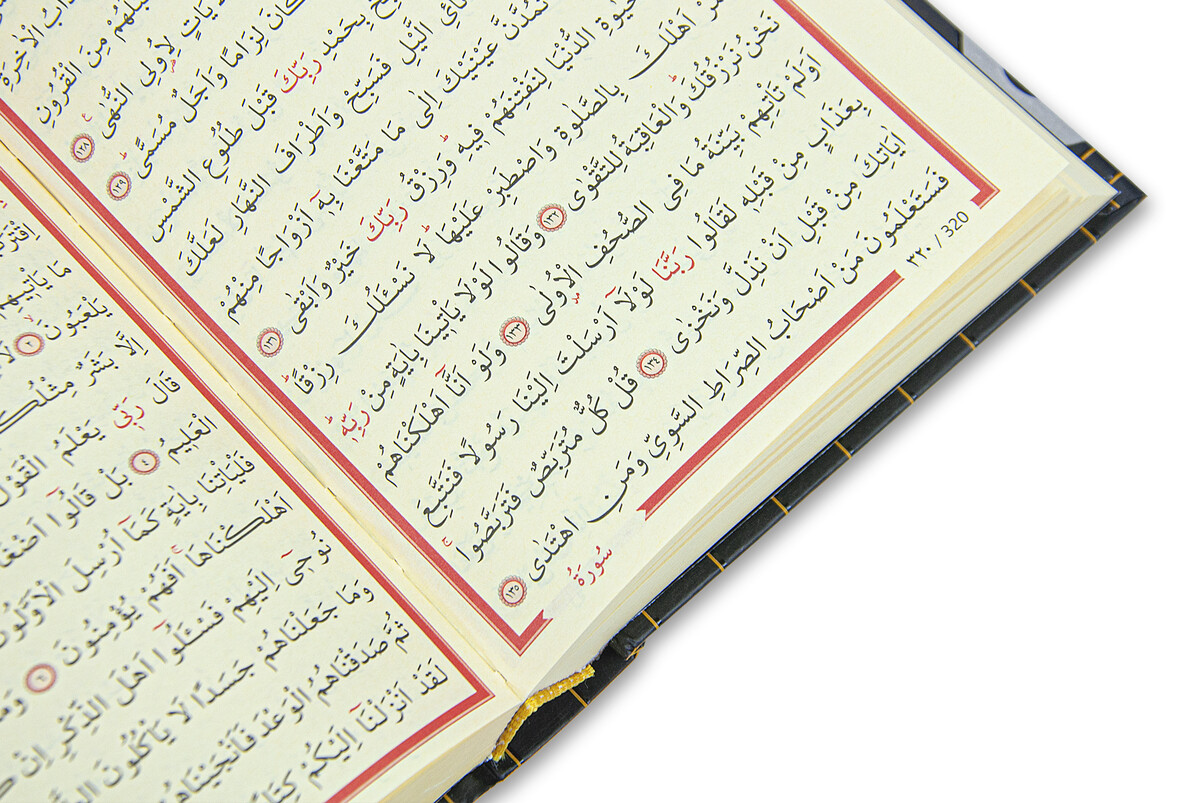 عَذَابُ الْاٰخِرَةِ
قَبْلَهُمْ مِنَ الْقُرُونِ
لَاٰيَاتٍ لِاُولِي النُّهٰى ١٢٨
كَانَ لِزَامًا وَاَجَلٌ مُسَمًّى ١٢٩
بِحَمْدِ رَبِّكَ قَبْلَ طُلُوعِ الشَّمْسِ
الَّيْلِ فَسَبِّحْ وَاَطْرَافَ النَّهَارِ لَعَلَّكَ
تَمُدَّنَّ عَيْنَيْكَ اِلٰى مَا مَتَّعْنَا بِهٖٓ اَزْوَاجًا مِنْهُمْ
الدُّنْيَا لِنَفْتِنَهُمْ فِيهِ وَرِزْقُ رَبِّكَ خَيْرٌ وَاَبْقٰى ١٣١
اَهْلَكَ بِالصَّلٰوةِ وَاصْطَبِرْ عَلَيْهَا لَا نَسْـَٔلُكَ رِزْقًا
نَحْنُ نَرْزُقُكَ وَالْعَاقِبَةُ لِلتَّقْوٰى ١٣٢ وَقَالُوا لَوْلَا يَأْتِينَا بِاٰيَةٍ مِنْ رَبِّهٖ
اَوَلَمْ تَأْتِهِمْ بَيِّنَةُ مَا فِي الصُّحُفِ الْاُولٰى ١٣٣ وَلَوْ اَنَّٓا اَهْلَكْنَاهُمْ
بِعَذَابٍ مِنْ قَبْلِهٖ لَقَالُوا رَبَّنَا لَوْلَٓا اَرْسَلْتَ اِلَيْنَا رَسُولًا فَنَتَّبِعَ
اٰيَاتِكَ مِنْ قَبْلِ اَنْ نَذِلَّ وَنَخْزٰى ١٣٤ قُلْ كُلٌّ مُتَرَبِّصٌ فَتَرَبَّصُوا
فَسَتَعْلَمُونَ مَنْ اَصْحَابُ الصِّرَاطِ السَّوِيِّ وَمَنِ اهْتَدٰى ١٣٥
٣٢٠ / 320
سُورَةُ
مَا يَأْتِيهِمْ
يَلْعَبُونَ ٢
اِلَّا بَشَرٌ مِثْلُكُمْ
قَالَ رَبّٖي يَعْلَمُ الْقَوْلَ
الْعَلِيمُ ٤ بَلْ قَالُٓوا
فَلْيَأْتِنَا بِاٰيَةٍ كَمَٓا اُرْسِلَ الْاَوَّلُونَ
اَهْلَكْنَاهَا اَفَهُمْ يُؤْمِنُونَ ٦ وَمَٓا
نُوحٖٓي اِلَيْهِمْ فَسْـَٔلُٓوا اَهْلَ الذِّكْرِ اِنْ
وَمَا جَعَلْنَاهُمْ جَسَدًا لَا يَأْكُلُونَ
ثُمَّ صَدَقْنَاهُمُ الْوَعْدَ فَاَنْجَيْنَاهُمْ
لَقَدْ اَنْزَلْنَٓا اِلَيْكُمْ